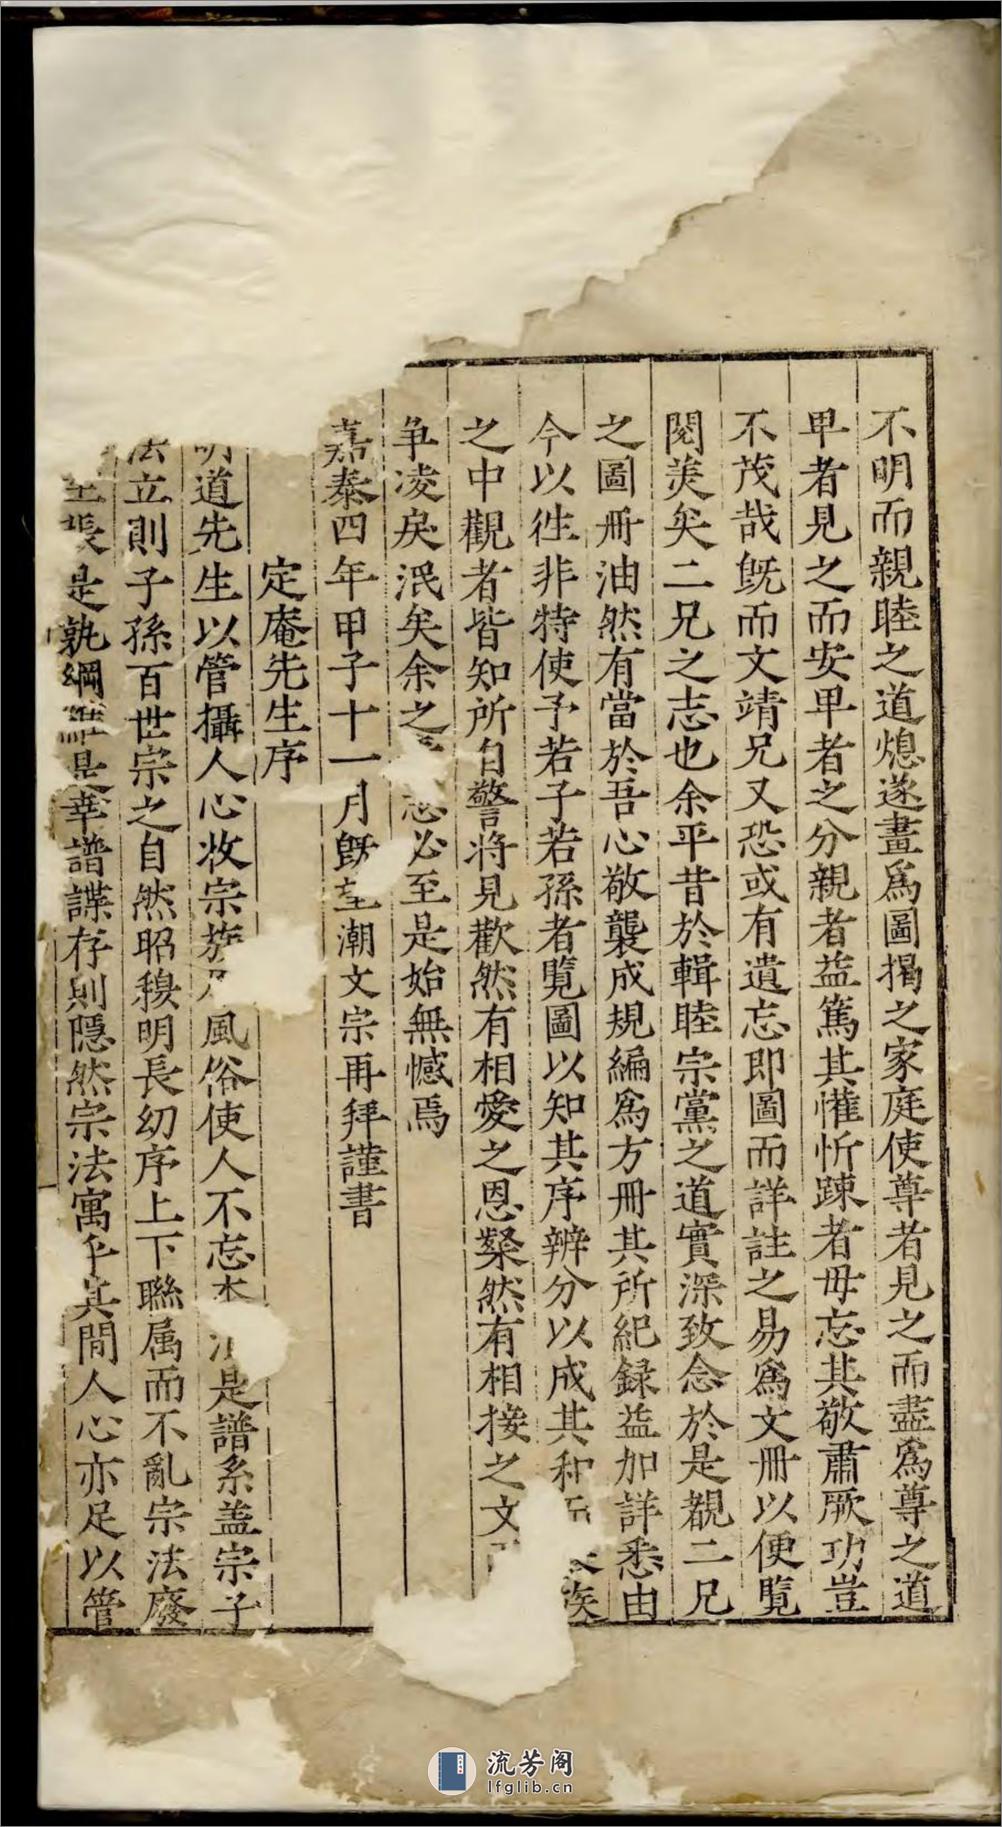 不明而親睦之道熄遂畫爲圖揭之家庭使尊者見之而盡爲尊之道
卑者見之而安卑者之分親者益篤其懽忻踈者毋忘其敬肅厥功豈
不茂哉旣而文靖兄又恐或有遺忘即圖而詳註之易爲文冊以便覽
閱美矣二兄之志也余平昔於輯睦宗黨之道實深致念於是覩二兄
之圖冊油然有當於吾心敬襲成規編爲方冊其所紀録益加詳悉由
今以徃非特使予若子若孫者覽圖以知其序辨分以成其和族
之中觀者皆知所自警將見歡然有相愛之恩粲然有相接之文
争凌戾泯矣余之志必至是始無憾焉
嘉泰四年甲子十一月旣望潮文宗再拜謹書
定庵先生序
明道先生以管攝人心收宗族風俗使人不忘本是譜系盖宗子
法立則子孫百世宗之自然昭穆明長幼序上下聯属而不亂宗法廢
是孰綱維是幸譜諜存則隱然宗法寓乎其間人心亦足以管
流芳阁
lfglib.cn